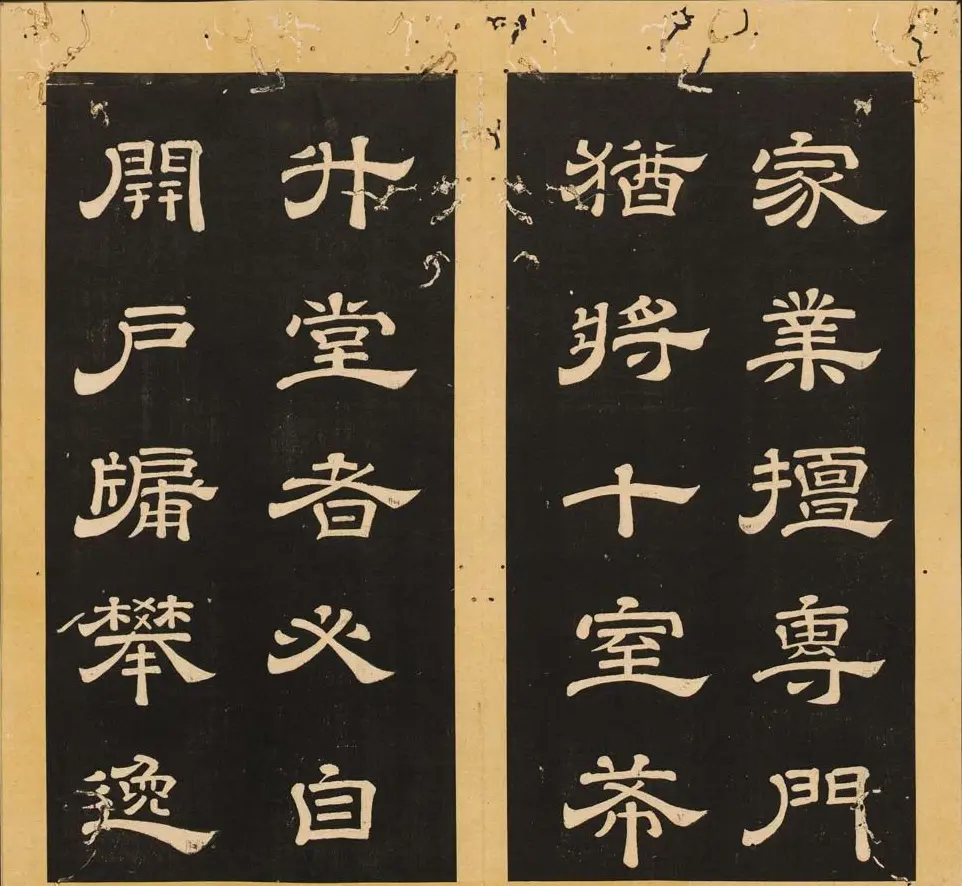 家業擅專門
猶將十室㠻
升堂者必自
開戶牖攀逸